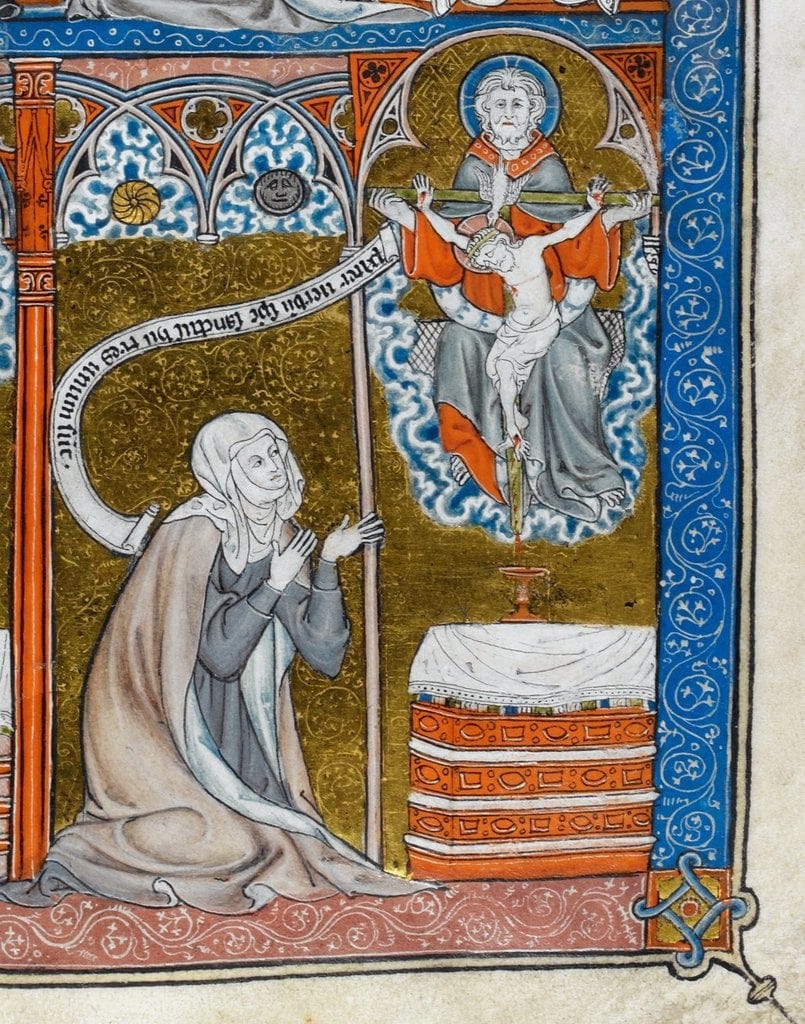 pater uerbū sp̄c sanctus hii tres unum sūt.